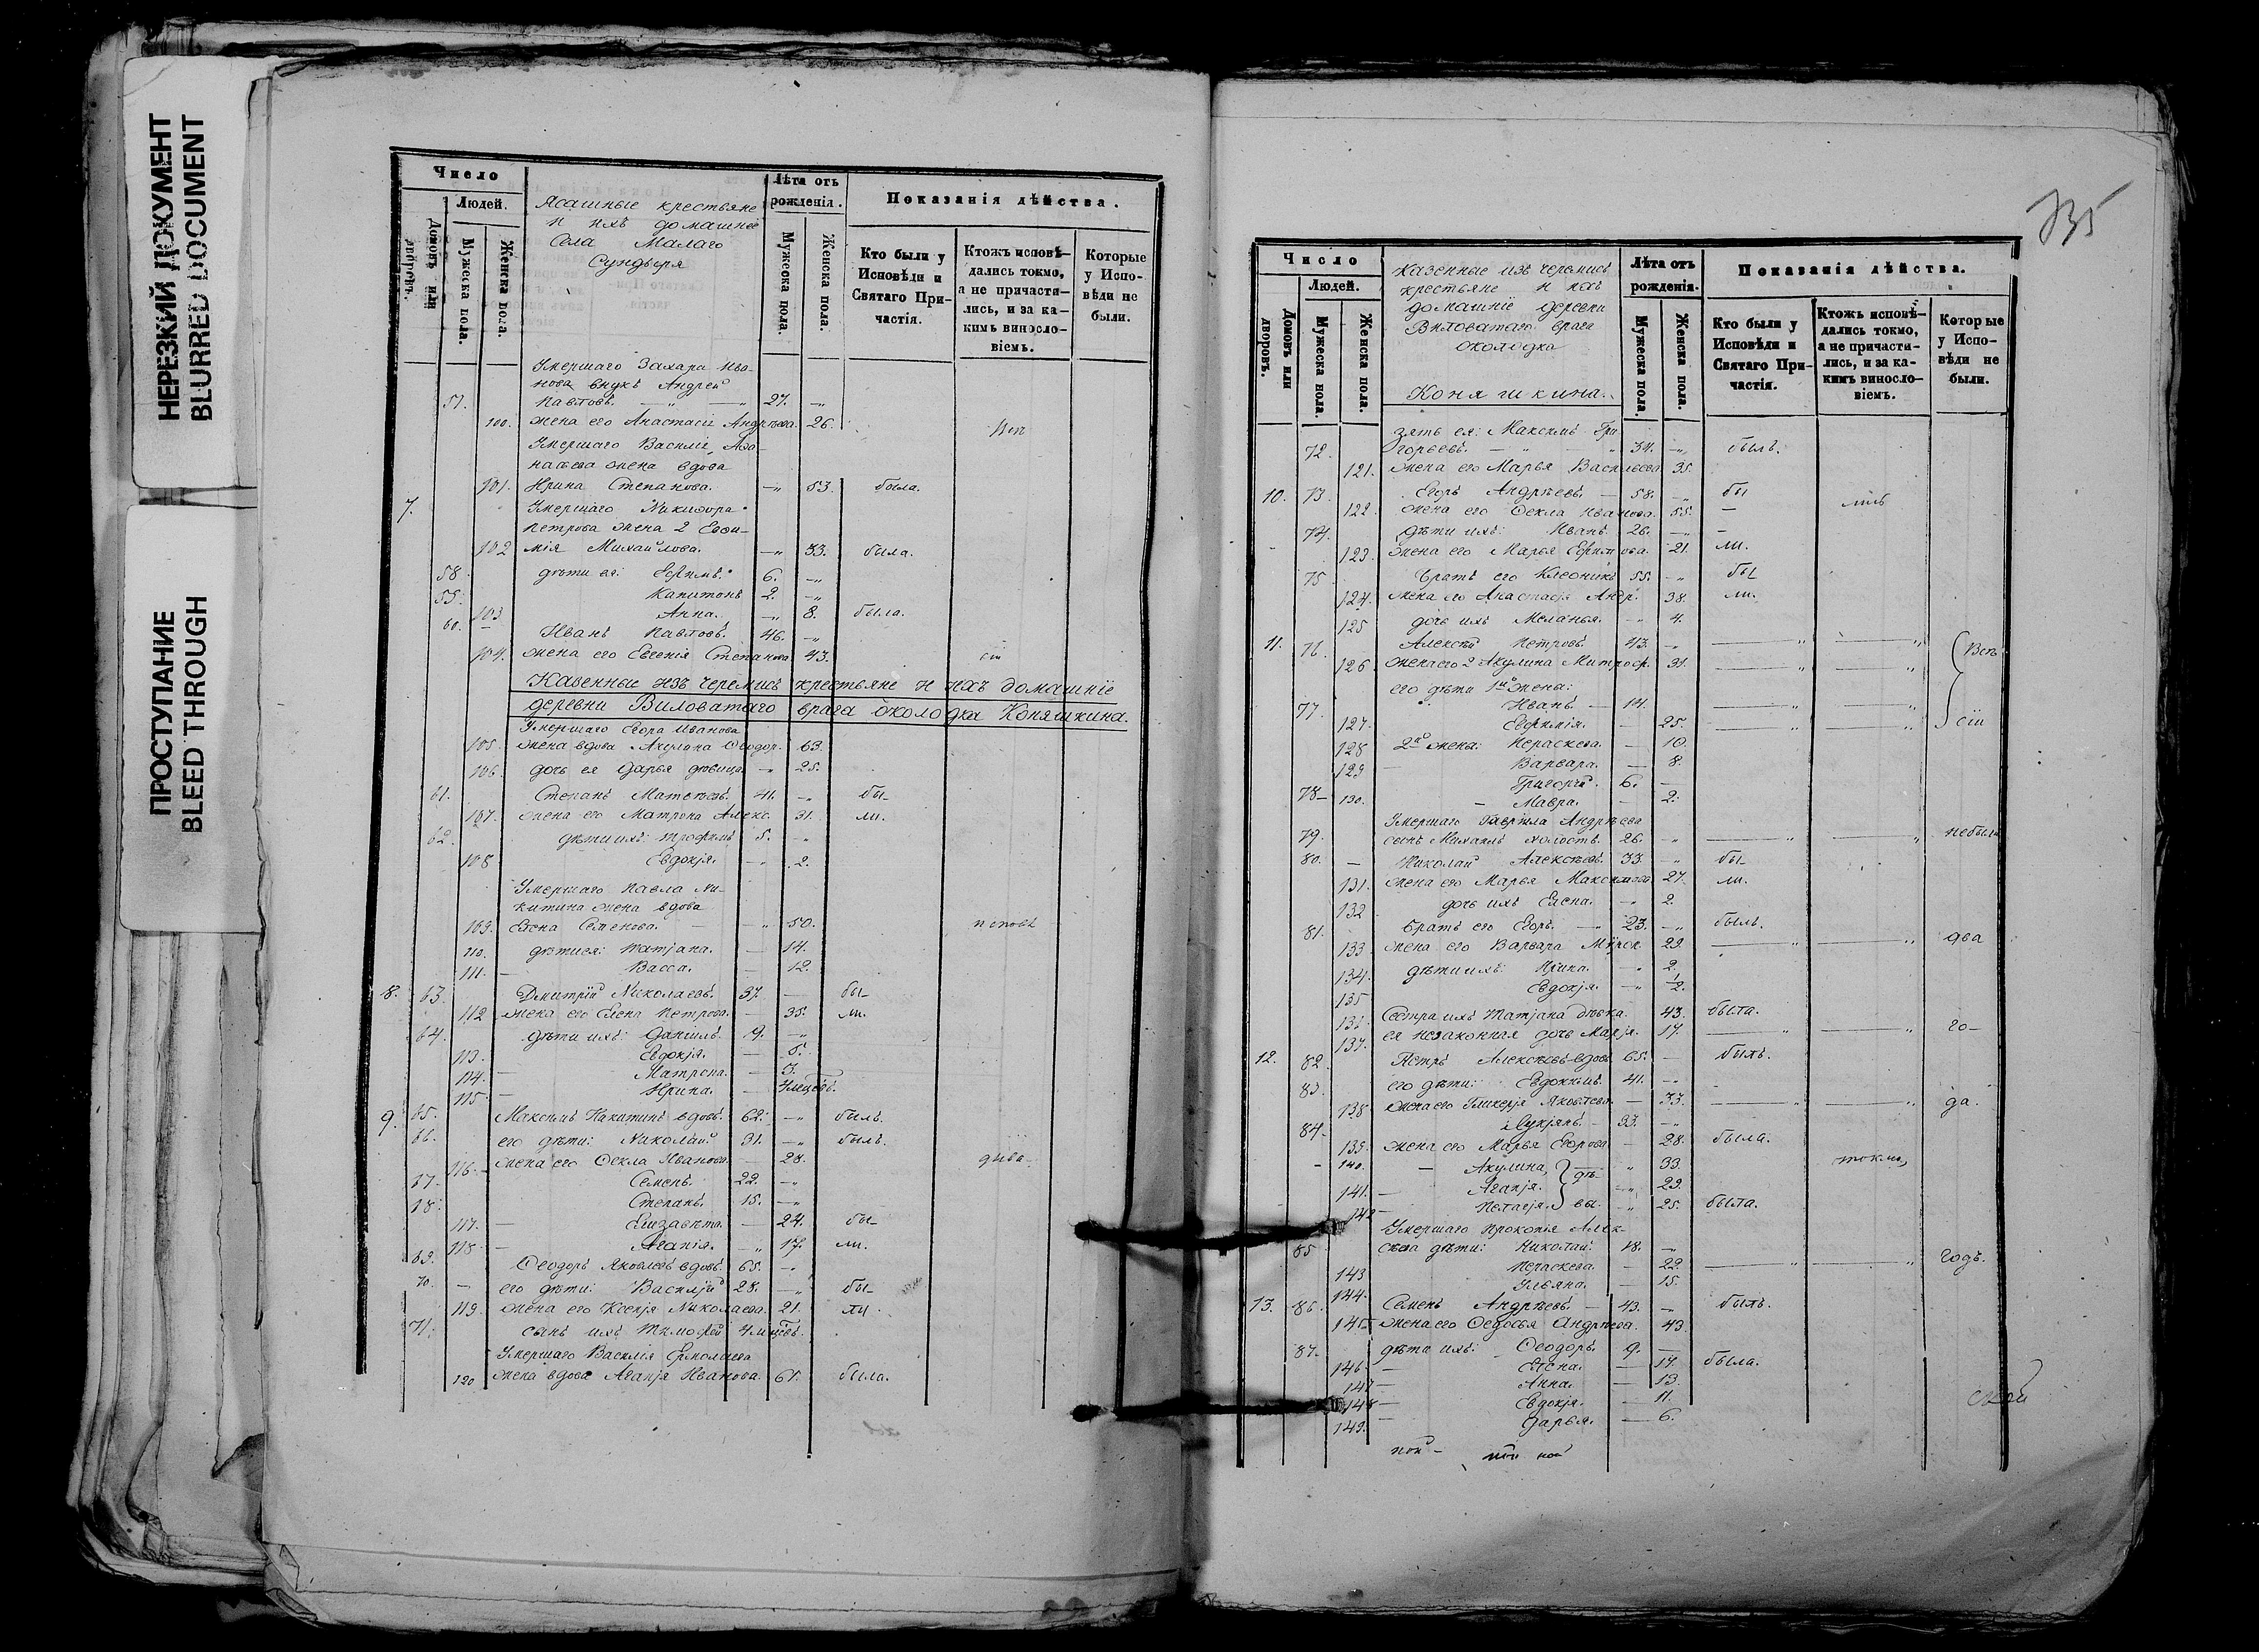 НЕРЕЗКИЙ ДОКУМЕНТ
BLURRED DOCUMENT
ПРОСТУПАНИЕ
BLEED THROUGH
Число
Людей.
Домовъ или дворовъ.
Мужеска пола.
Женска пола.
Ясашные крестьяне
и ихъ домашніе
Села Малаго
Сундыря
Лѣта отъ рожденія.
Мужеска пола.
Женска пола.
Показанія дѣйства.
Кто были у Исповѣди и Святаго Причастія.
Ктожъ исповѣдались токмо, а не причастились, и за какимъ винословіемъ.
Которые у Исповѣди не были.
Умершаго Захара Ива-
нова внукъ Андрей
57. Павловъ. 27.
100. жена его Анастасія Андрѣева. 26.
Умершаго Василія Аѳа-
насьева жена вдова
101. Ирина Степанова. 53. была.
7. Умершаго Никифора
Петрова жена 2 Евфи-
102 мія Михайлова. 33. была.
58 дѣти ея: Ефимъ. 6.
59. Капитонъ 2.
103 Анна. 8. была.
60. Иванъ Павловъ. 46.
104. жена его Евгенія Степанова 43.
Казенные изъ черемисъ крестьяне и ихъ домашніе
деревни Виловатаго врага околодка Коняшкина.
Умершаго Егора Иванова
105. жена вдова Акулина Ѳеодор. 63.
106. дочь ея Дарья дѣвица 25.
61. Степанъ Матвѣевъ. 41. бы-
107. жена его Матрона Алекс. 31. ли.
62. дѣти ихъ: Трофимъ 5.
108 Евдокія. 2.
Умершаго Павла Ни-
китина жена вдова
109. Елена Семенова. 50.
110. дѣти ея: Татјана. 14.
111. Васса. 12.
8. 63. Дмитрій Николаевъ. 37. бы-
112 жена его Елена Петрова. 35. ли.
64. дѣти ихъ: Даніилъ. 9.
113. Евдокія. 5.
114. Матрона. 3.
115. Ирина.
9. 65. Максимъ Никитинъ вдовъ. 62. былъ.
66. его дѣти: Николай 31. былъ.
116. жена его Ѳекла Иванова 28.
67. Семенъ. 22.
68. Степанъ. 15.
117. Елизавета. 24. бы-
118 Агапія. 17. ли.
69. Ѳеодоръ Яковлевъ вдовъ. 65.
70. его дѣти: Василій 28. бы-
119. жена его Ксенія Николаева. 21. ли.
71. сынъ ихъ Тимофей
Умершаго Василія Ермолаева
120 жена вдова Агапія Иванова. 61. была.
Число
Людей.
Домовъ или дворовъ.
Мужеска пола.
Женска пола.
Казенные изъ черемисъ
крестьяне и ихъ
домашніе деревни
Виловатаго врага
околодка
Коняшкина.
Лѣта отъ рожденія.
Мужеска пола.
Женска пола.
Показанія дѣйства.
Кто были у Исповѣди и Святаго Причастія.
Ктожъ исповѣдались токмо, а не причастились, и за какимъ винословіемъ.
Которые у Исповѣди не были.
зять ея: Максимъ Гри-
72. горьевъ. 34. былъ.
121. жена его Марья Васильева. 35.
10. 73. Егоръ Андрѣевъ. 58. бы
122. жена его Ѳекла Иванова. 55.
74. дѣти ихъ: Иванъ. 26.
123. жена его Марья 21. ли.
75 братъ его 55. бы
124. жена его Анастасія Андр. 38. ли.
125 дочь ихъ Меланья. 4.
11. 76. Алексѣй Петровъ. 43.
126 жена его 2 Акулина Митроф. 31.
его дѣти 1й жены:
77. Иванъ
127. Евфимія. 25. сіи
128 2й жены: Пераскева. 10.
129 Варвара. 8.
78 Григорій. 6.
130. Мавра. 2.
Умершаго Гавріила Андрѣева
79. сынъ Михаилъ холостъ. 26. небыли
80. Николай Алексѣевъ. 33. бы-
131. жена его Марья Максимова 27. ли.
132 дочь ихъ Елена. 2.
81. братъ его Егоръ. 23. былъ.
133 жена его Варвара 29. два
134. дѣти ихъ: Ирина. 2.
135 Евдокія. 1/2.
136 Сестра ихъ Татјана дѣвка. 43. была.
137. ея незаконная дочь Марія. 17. го-
12. 82. Петръ Алексѣевъ вдовъ 65. былъ.
83. его дѣти: Евдокимъ. 41.
138 жена его Гликерія Яковлева. 33. да.
84. Лукіянъ. 33.
139. жена его Марья Егорова. 28. была.
140. Акулина, 33. токмо,
141. Агапія. дѣ- 29.
142 Пелагія. вы. 25. была.
Умершаго Прокопія Алек-
85 сѣева дѣти: Николай. 18.
143 Пераскева. 22. годъ.
144. Ульяна. 15.
13. 86. Семенъ Андрѣевъ. 43. былъ.
145 жена его Ѳедосья Андрѣева. 43.
87. дѣти ихъ: Ѳеодоръ. 9.
146 Елена. 17. была.
147 Анна. 13.
148 Евдокія. 11.
149. Дарья. 6.